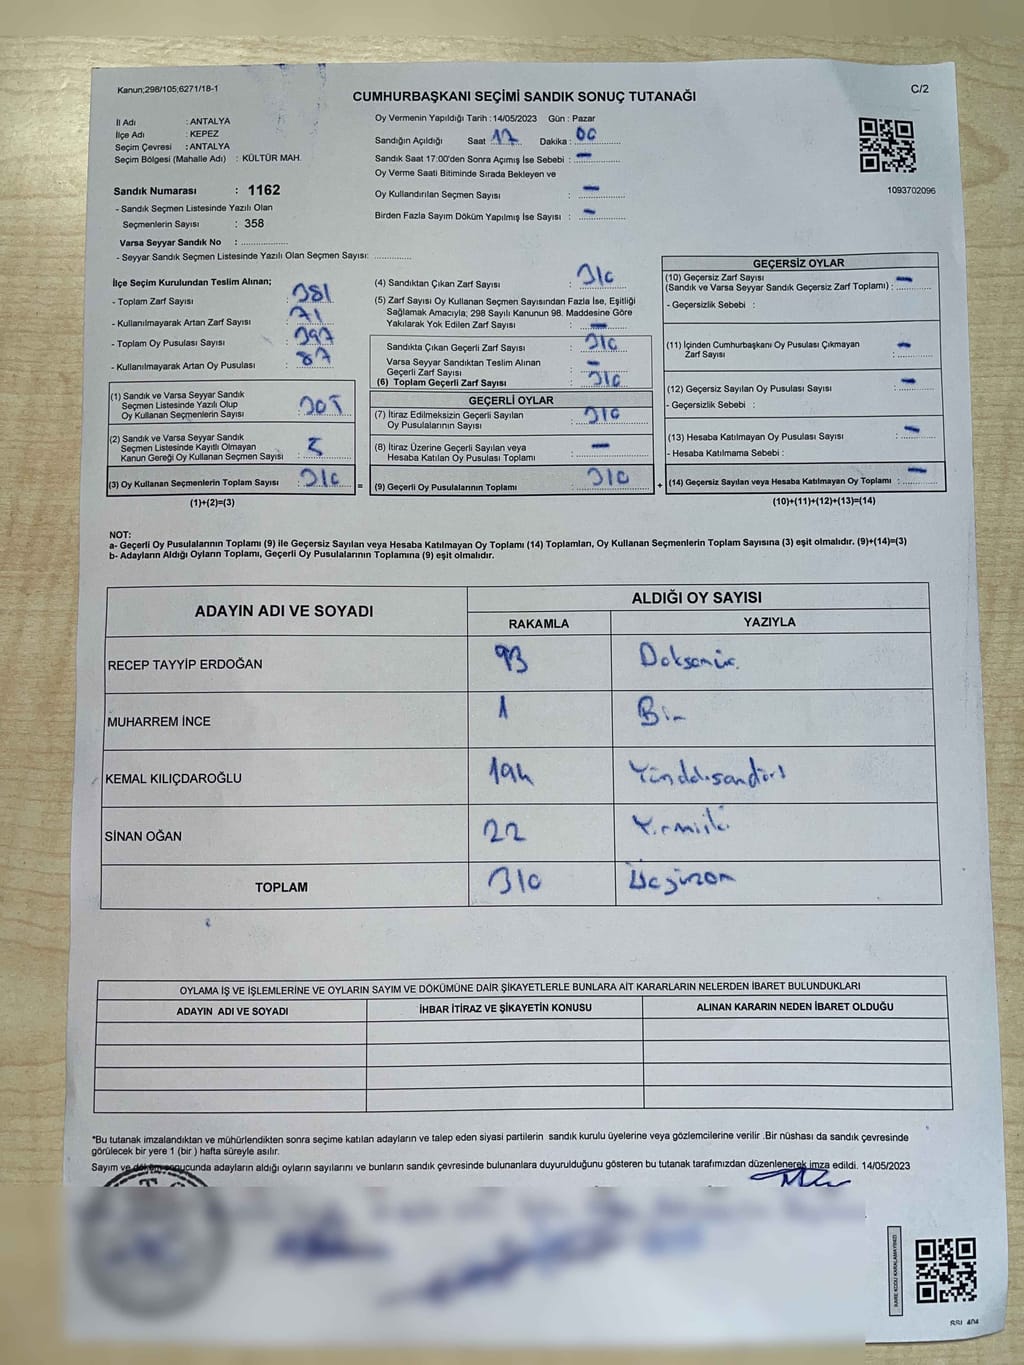 Kanun;298/105,6271/18-1
CUMHURBAŞKANI SEÇİMİ SANDIK SONUÇ TUTANAĞI
C/2
İl Adı : ANTALYA
İlçe Adı : KEPEZ
Seçim Çevresi : ANTALYA
Seçim Bölgesi (Mahalle Adı) : KÜLTÜR MAH.
Sandık Numarası : 1162
- Sandık Seçmen Listesinde Yazılı Olan
Seçmenlerin Sayısı : 358
Varsa Seyyar Sandık No : ................
- Seyyar Sandık Seçmen Listesinde Yazılı Olan Seçmen Sayısı: ..............
Oy Vermenin Yapıldığı Tarih : 14/05/2023 Gün : Pazar
Sandığın Açıldığı Saat 17 Dakika : 00
Sandık Saat 17:00'den Sonra Açımış İse Sebebi : —
Oy Verme Saati Bitiminde Sırada Bekleyen ve
Oy Kullandırılan Seçmen Sayısı : —
Birden Fazla Sayım Döküm Yapılmış İse Sayısı : —
1093702096
İlçe Seçim Kurulundan Teslim Alınan;
- Toplam Zarf Sayısı : 381
- Kullanılmayarak Artan Zarf Sayısı : 71
- Toplam Oy Pusulası Sayısı : 397
- Kullanılmayarak Artan Oy Pusulası : 87
(1) Sandık ve Varsa Seyyar Sandık
Seçmen Listesinde Yazılı Olup
Oy Kullanan Seçmenlerin Sayısı : 305
(2) Sandık ve Varsa Seyyar Sandık
Seçmen Listesinde Kayıtlı Olmayan
Kanun Gereği Oy Kullanan Seçmen Sayısı : 5
(3) Oy Kullanan Seçmenlerin Toplam Sayısı : 310
(1)+(2)=(3)
=
(4) Sandıktan Çıkan Zarf Sayısı : 310
(5) Zarf Sayısı Oy Kullanan Seçmen Sayısından Fazla İse, Eşitliği
Sağlamak Amacıyla; 298 Sayılı Kanunun 98. Maddesine Göre
Yakılarak Yok Edilen Zarf Sayısı : —
Sandıkta Çıkan Geçerli Zarf Sayısı : 310
Varsa Seyyar Sandıktan Teslim Alınan
Geçerli Zarf Sayısı : —
(6) Toplam Geçerli Zarf Sayısı : 310
GEÇERLİ OYLAR
(7) İtiraz Edilmeksizin Geçerli Sayılan
Oy Pusulalarının Sayısı : 310
(8) İtiraz Üzerine Geçerli Sayılan veya
Hesaba Katılan Oy Pusulası Toplamı : —
(9) Geçerli Oy Pusulalarının Toplamı : 310
+
GEÇERSİZ OYLAR
(10) Geçersiz Zarf Sayısı
(Sandık ve Varsa Seyyar Sandık Geçersiz Zarf Toplamı) : —
- Geçersizlik Sebebi :
(11) İçinden Cumhurbaşkanı Oy Pusulası Çıkmayan
Zarf Sayısı : —
(12) Geçersiz Sayılan Oy Pusulası Sayısı : —
- Geçersizlik Sebebi :
(13) Hesaba Katılmayan Oy Pusulası Sayısı : —
- Hesaba Katılmama Sebebi :
(14) Geçersiz Sayılan veya Hesaba Katılmayan Oy Toplamı : —
(10)+(11)+(12)+(13)=(14)
NOT:
a- Geçerli Oy Pusulalarının Toplamı (9) ile Geçersiz Sayılan veya Hesaba Katılmayan Oy Toplamı (14) Toplamları, Oy Kullanan Seçmenlerin Toplam Sayısına (3) eşit olmalıdır. (9)+(14)=(3)
b- Adayların Aldığı Oyların Toplamı, Geçerli Oy Pusulalarının Toplamına (9) eşit olmalıdır.
ADAYIN ADI VE SOYADI ALDIĞI OY SAYISI
RAKAMLA YAZIYLA
RECEP TAYYİP ERDOĞAN 93
MUHARREM İNCE 1 Bir
KEMAL KILIÇDAROĞLU 194
SİNAN OĞAN 22 Yirmiiki
TOPLAM 310 Üçyüzon
OYLAMA İŞ VE İŞLEMLERİNE VE OYLARIN SAYIM VE DÖKÜMÜNE DAİR ŞİKAYETLERLE BUNLARA AİT KARARLARIN NELERDEN İBARET BULUNDUKLARI
ADAYIN ADI VE SOYADI İHBAR İTİRAZ VE ŞİKAYETİN KONUSU ALINAN KARARIN NEDEN İBARET OLDUĞU
*Bu tutanak imzalandıktan ve mühürlendikten sonra seçime katılan adayların ve talep eden siyasi partilerin sandık kurulu üyelerine veya gözlemcilerine verilir .Bir nüshası da sandık çevresinde
görülecek bir yere 1 (bir ) hafta süreyle asılır.
Sayım ve döküm sonucunda adayların aldığı oyların sayılarını ve bunların sandık çevresinde bulunanlara duyurulduğunu gösteren bu tutanak tarafımızdan düzenlenerek imza edildi. 14/05/2023